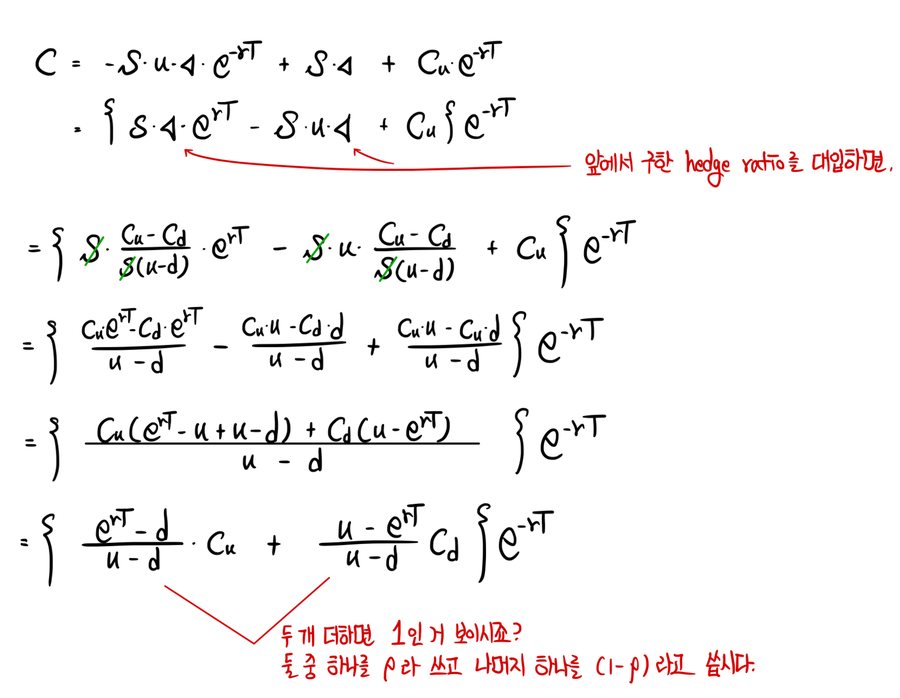 C = -S·u·Δ·e^{-rT} + S·Δ + Cu·e^{-rT}
= { S·Δ·e^{rT} - S·u·Δ + Cu } e^{-rT}
앞에서 구한 hedge ratio를 대입하면,
= { S· (Cu - Cd)/(S(u-d)) ·e^{rT} - S·u· (Cu - Cd)/(S(u-d)) + Cu } e^{-rT}
= { (Cu·e^{rT} - Cd·e^{rT})/(u - d) - (Cu·u - Cd·d)/(u - d) + (Cu·u - Cu·d)/(u - d) } e^{-rT}
= { (Cu(e^{rT} - u + u - d) + Cd(u - e^{rT}))/(u - d) } e^{-rT}
= { (e^{rT} - d)/(u - d) · Cu + (u - e^{rT})/(u - d) Cd } e^{-rT}
두개 더하면 1인거 보이시죠?
둘 중 하나를 p라 쓰고 나머지 하나를 (1-p)라고 씁시다.